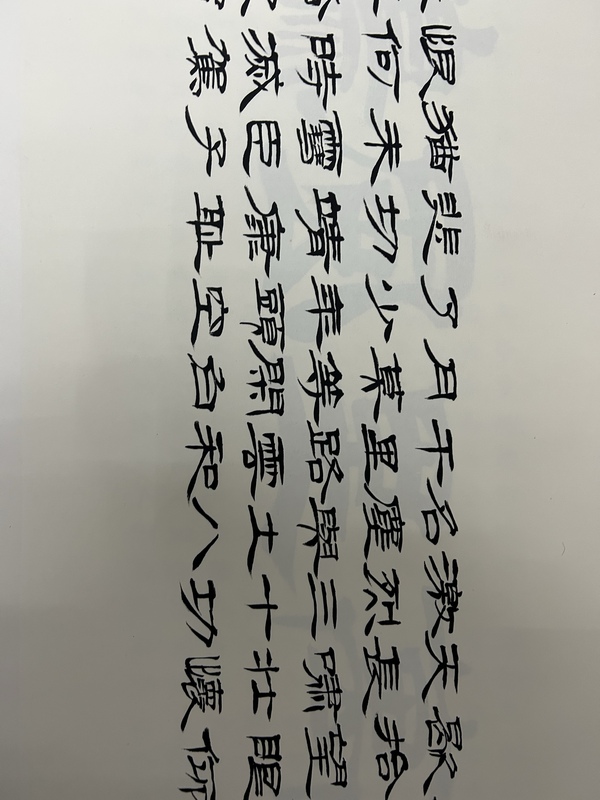 恨猶悲了月千名激天歇
何未切少莫里塵烈長抬
時雪靖年等路與三嘯望
滅臣康頭閑雲土十壯眼
駕子恥空白和八功懷仰